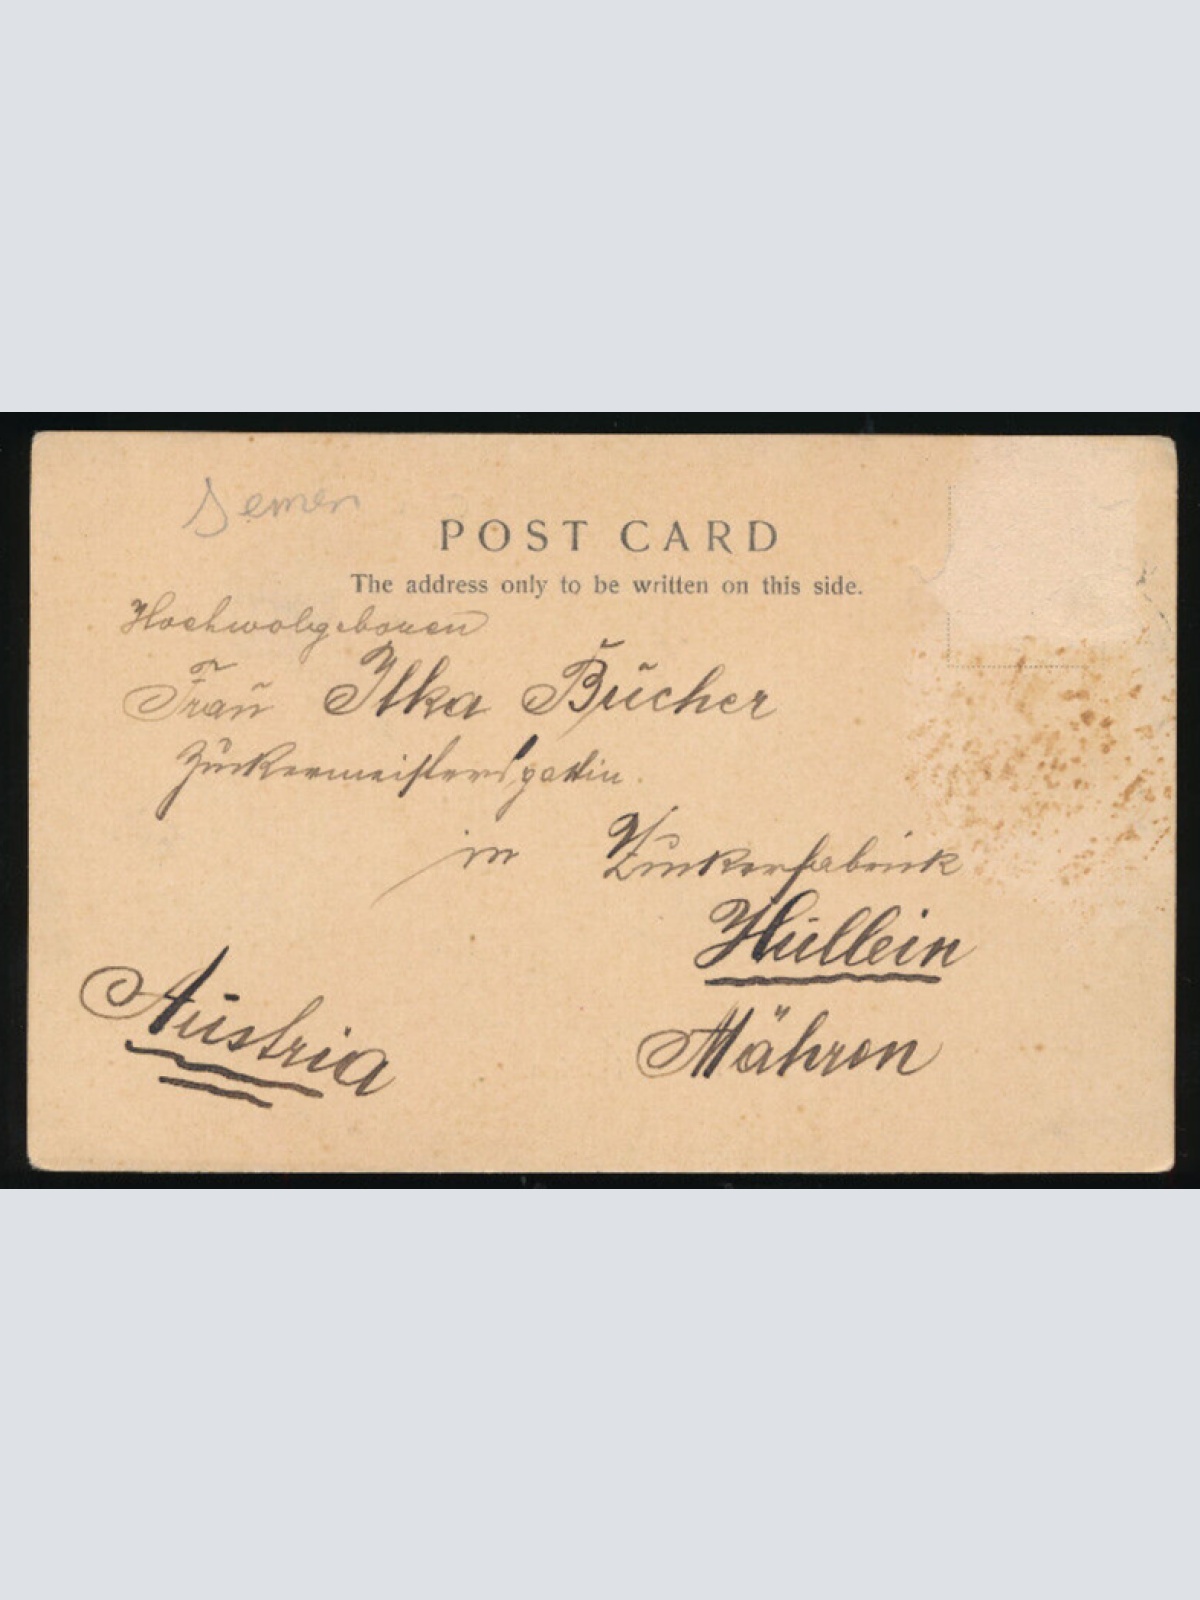 Jemen
POST CARD
The address only to be written on this side.
Hochwolgeboren
Frau Ilka Bucher
Zuckermeistersgattin.
in Zuckerfabrik
Hullein
Mähren
Austria